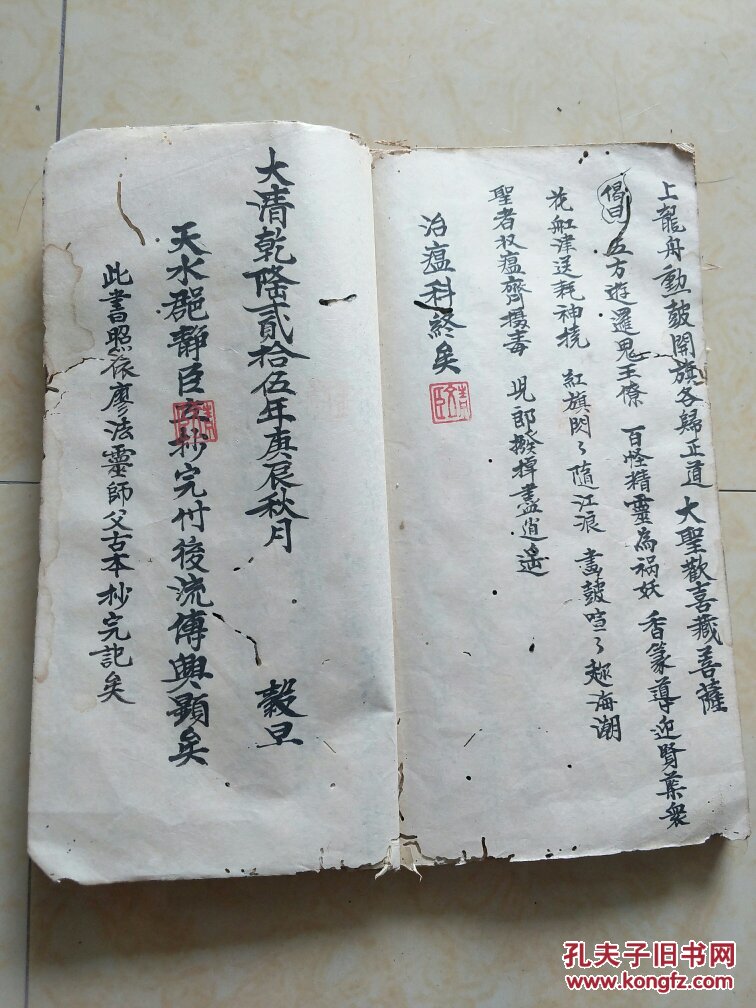 上龍舟動皷開旗各歸正道 大聖歡喜藏菩薩
偈曰 五方遊邏鬼王僚 百怪精靈為禍妖 香篆導迎賢葉衆
花舡津送耗神撓 紅旗閃々隨江浪 畫皷喧々趂海潮
聖者收瘟齊攝毒 児郎撥掉盡逍遙
治瘟科終矣
大清乾隆貳拾伍年庚辰秋月 穀旦
天水郡靜臣立抄完付後流傳興顯矣
此書照依廖法靈師父古本抄完記矣
孔夫子旧书网
www.kongfz.com